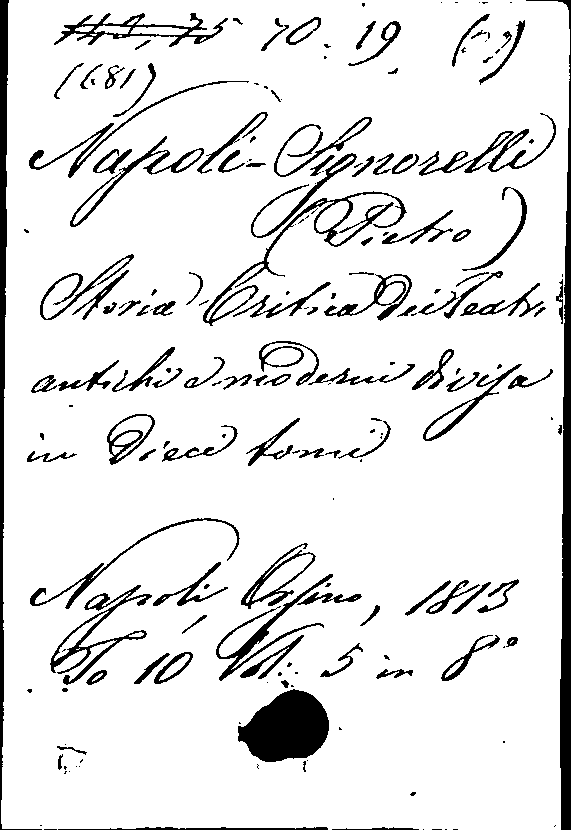 143,75 70. 19.
(681)
Napoli-Signorelli
(Pietro)
Storia Critica Dei Teatri
antichi e moderni divisa
in Dieci tomi
Napoli, Orsino, 1813
To 10 Vol. 5 in 8°